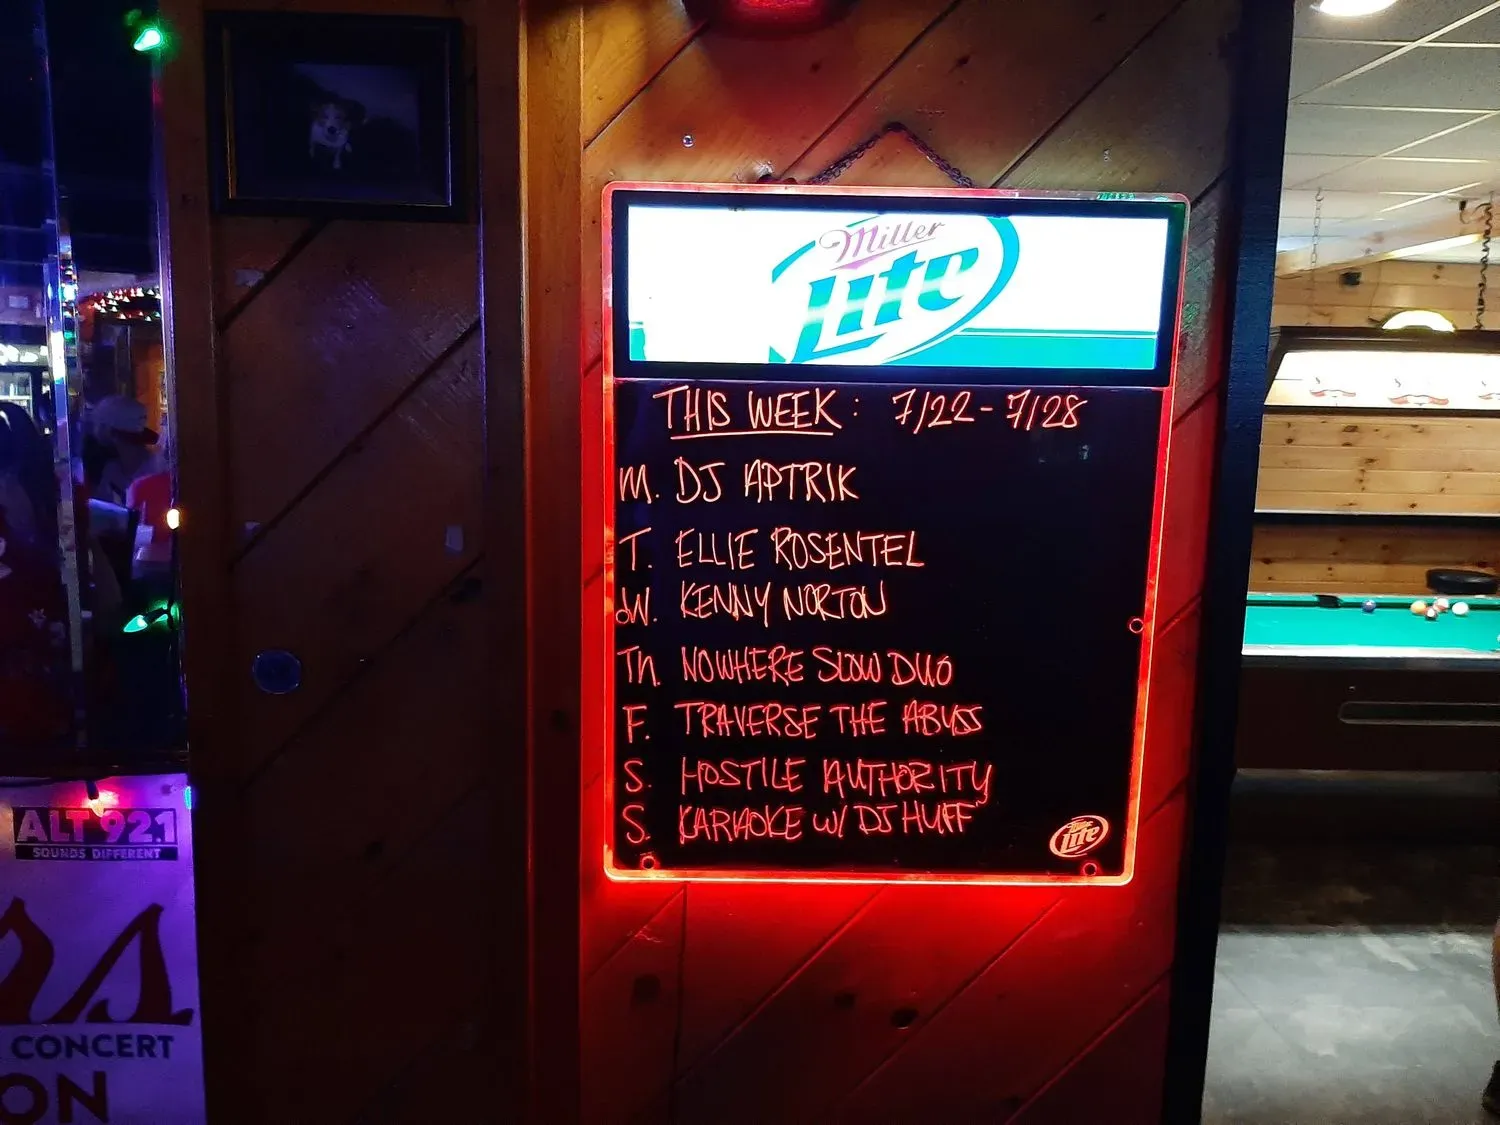 Miller
Lite
THIS WEEK: 7/22 - 7/28
M. DJ APTRIK
T. ELLIE ROSENTEL
W. KENNY NORTON
Th. NOWHERE SLOW DUO
F. TRAVERSE THE ABYSS
S. HOSTILE AUTHORITY
S. KARAOKE W/ DJ HUFF
Lite
ALT 92.1
SOUNDS DIFFERENT
CONCERT
ON